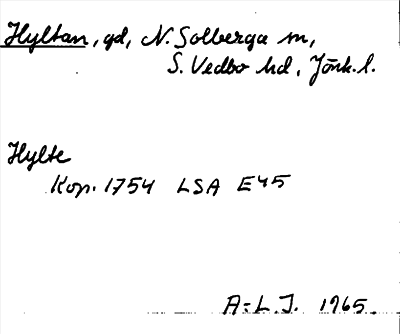 Hyltan, gd, N. Solberga sn,
S. Vedbo hd, Jönk. l.
Hylte
Kop. 1754 LSA E45
A-L. J. 1965.